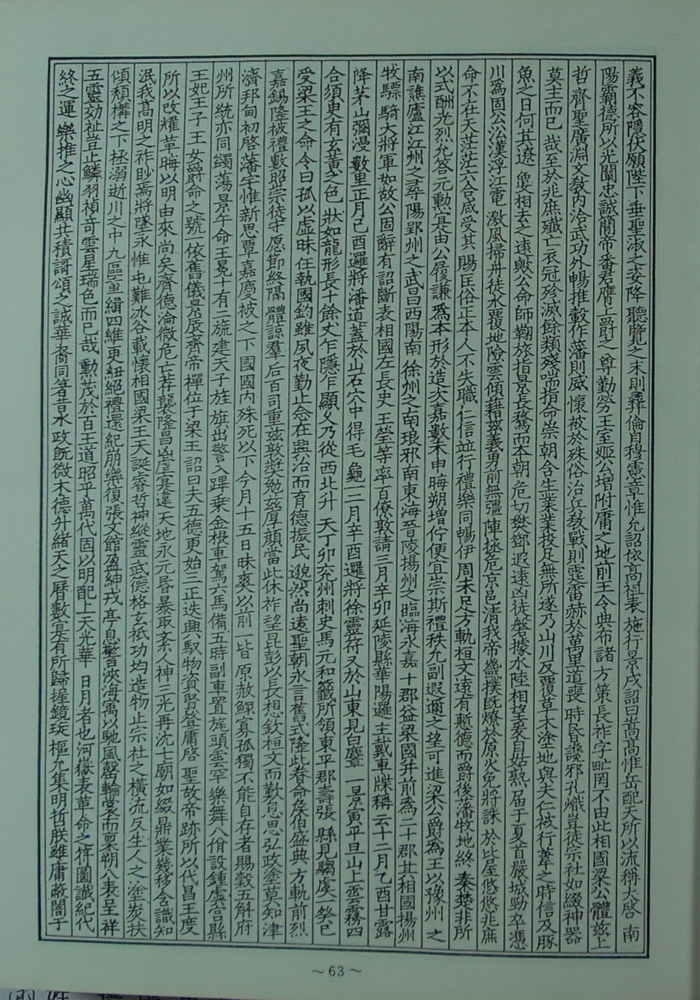 義不容隱伏願陛下垂聖淑之姿降聽覽之末則彝倫自穆憲章惟允詔依高祖表施行景戌詔曰嵩高惟岳配天所以流稱大啓南
陽霸德所以光闡忠誠簡帝番君膺上爵之尊勤勞王室姬公增附庸之地前王令典布諸方策長祚字甿罔不由此相國梁公體茲上
哲齊聖廣淵文敎內洽武功外暢推轂作藩則威懷被於殊俗治兵敎戰則霆雷赫於萬里道喪時昏讒邪孔熾豈徒宗社如綴神器
莫主而已哉至於兆庶殲亡衣冠殄滅餘類殘喘指命崇朝含生業業投足無所遂乃山川反覆草木塗地與夫仁被行葦之時信及豚
魚之日何其遼夐相去之遠歟公命師鞠旅指景長騖而本朝危切樊鄧遐遠凶徒盤據水陸相望爰自姑熟屆于夏首嚴城勁卒憑
川爲固公沿漢浮江電激風掃舟徒水覆地險雲傾藉茲義勇前無彊陣拯危京邑淸我帝畿撲旣燎於原火免將誅於比屋悠悠兆庶
命不在天茫茫六合咸受其賜匡俗正本人不失職仁信並行禮樂同暢伊周未足方軌桓文遠有慙德而爵後藩牧地終秦楚非所
以式酬光烈允答元勳寔由公履謙爲本形於造次嘉數未申晦朔增佇便宜崇斯禮秩允副遐邇之望可進梁公爵爲王以豫州之
南譙廬江江州之尋陽郢州之武昌西陽南徐州之南琅邪南東海晉陵揚州之臨海永嘉十郡益梁國幷前爲二十郡其相國揚州
牧驃騎大將軍如故公固辭有詔斷表相國左長史王瑩等率百僚敦請三月辛卯延陵縣華陽邏主戴車牒稱云十二月乙酉甘露
降茅山彌漫數里正月己酉邏將潘道蓋於山石穴中得毛龜一二月辛酉邏將徐靈符又於山東見白麞一景寅平旦山上雲霧四
合須臾有玄黃之色狀如龍形長十餘丈乍隱乍顯久乃從西北升天丁卯兗州刺史馬元和籤所領東平郡壽張縣見騶虞一癸巳
受梁王之命令曰孤以虛昧任執國鈞雖夙夜勤止念在興治而育德振民邈然尚遠聖朝永言舊式隆此眷命侯伯盛典方軌前烈
嘉錫隆被禮數昭崇徒守愿節終隔體諒羣后百司重茲敦奬勉茲厚顔當此休祚望昆彭以長想欽桓文而歎息思弘政塗莫知津
濟邦甸初啓藩宇惟新思覃嘉慶被之下國國內殊死以下今月十五日昧爽以前一皆原赦鰥寡孤獨不能自存者賜穀五斛府
州所統亦同蠲蕩景午命王冕十有二旒建天子旌旗出警入蹕乘金根車駕六馬備五時副車置旄頭雲䍐樂舞八佾設鍾虡宮縣
王妃王子王女爵命之號一依舊儀景辰齊帝禪位于梁王詔曰夫五德更始三正迭興馭物資賢登庸啓聖故帝跡所以代昌王度
所以改耀革晦以明由來尚矣齊德淪微危亡荐襲隆昌凶虐寔違天地永元昏暴取紊人神三光再沈七廟如綴鼎業幾移含識知
泯我高明之祚眇焉將墜永惟屯難冰谷載懷相國梁王天誕睿哲神縱靈武德格玄祇功均造物止宗社之橫流反生人之塗炭扶
傾頹構之下拯溺逝川之中九區重緝四維更紐絕禮還紀崩樂復張文館盈紳戎亭息警浹海寓以馳風罄輪裳而稟朔八表呈祥
五靈効祉豈止鱗羽禎奇雲星瑞色而已哉勳茂於百王道昭乎萬代固以明配上天光華日月者也河嶽表革命之符圖讖紀代
終之運樂推之心幽顯共積謌頌之誠華裔同著昔水政旣微木德升緒天之曆數寔有所歸握鏡琁樞允集明哲朕雖庸蔽闇于
～63～